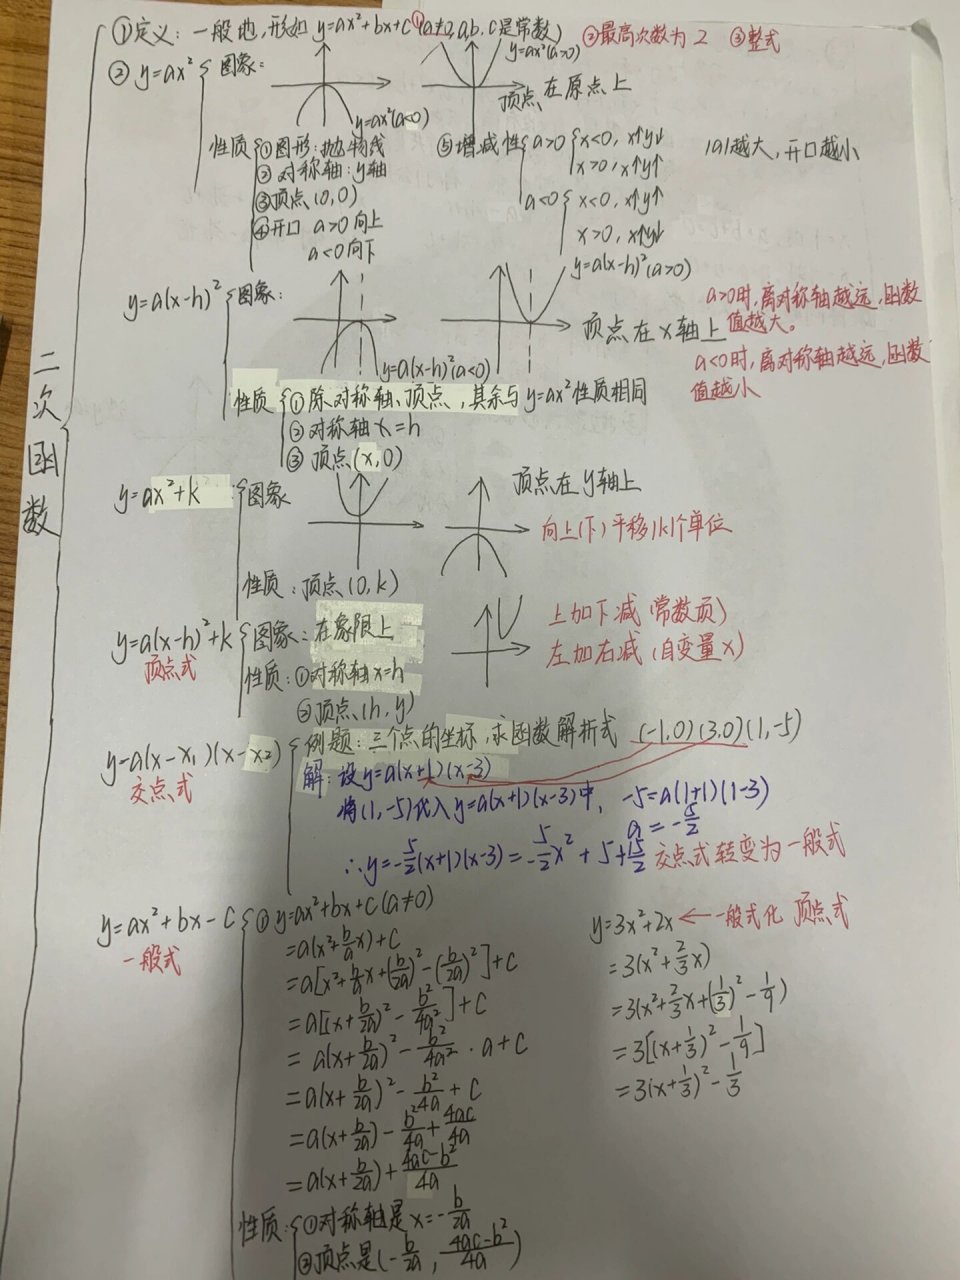 二次函数
①定义：一般地,形如 y=ax²+bx+c ①(a≠0,a,b,c是常数) ②最高次数为2 ③整式
② y=ax² 图象： y=ax²(a>0)
顶点在原点上
y=ax²(a<0)
性质 ①图形:抛物线 ⑤增减性 a>0 x<0, x↑y↓ |a|越大,开口越小
②对称轴:y轴 x>0, x↑y↑
③顶点(0,0) a<0 x<0, x↑y↑
④开口 a>0 向上 x>0, x↑y↓
a<0 向下
y=a(x-h)² 图象： y=a(x-h)²(a>0)
a>0时,离对称轴越远,函数
值越大。
顶点在x轴上
a<0时,离对称轴越远,函数
值越小
y=a(x-h)²(a<0)
性质 ①除对称轴、顶点,其余与y=ax²性质相同
②对称轴x=h
③顶点(x,0)
y=ax²+k 图象 顶点在y轴上
向上(下)平移|k|个单位
性质：顶点(0,k)
y=a(x-h)²+k 图象：在象限上 上加下减(常数项)
顶点式 左加右减(自变量x)
性质：①对称轴x=h
②顶点(h,y)
y=a(x-x₁)(x-x₂) 例题：三个点的坐标,求函数解析式 (-1,0)(3,0)(1,-5)
交点式 解：设y=a(x+1)(x-3)
将(1,-5)代入y=a(x+1)(x-3)中, -5=a(1+1)(1-3)
a=-5/2
∴y=-5/2(x+1)(x-3)=-5/2x²+5+15/2 交点式转变为一般式
y=ax²+bx-c ①y=ax²+bx+c(a≠0) y=3x²+2x ← 一般式化 顶点式
一般式 =a(x²+b/a x)+c =3(x²+2/3x)
=a[x²+b/a x+(b/2a)²-(b/2a)²]+c =3(x²+2/3x+(1/3)²-1/9)
=a[(x+b/2a)²-b²/4a²]+c =3[(x+1/3)²-1/9]
=a(x+b/2a)²-b²/4a²·a+c =3(x+1/3)²-1/3
=a(x+b/2a)²-b²/4a+c
=a(x+b/2a)-b²/4a+4ac/4a
=a(x+b/2a)+4ac-b²/4a
性质：①对称轴是x=-b/2a
②顶点是(-b/2a, 4ac-b²/4a)